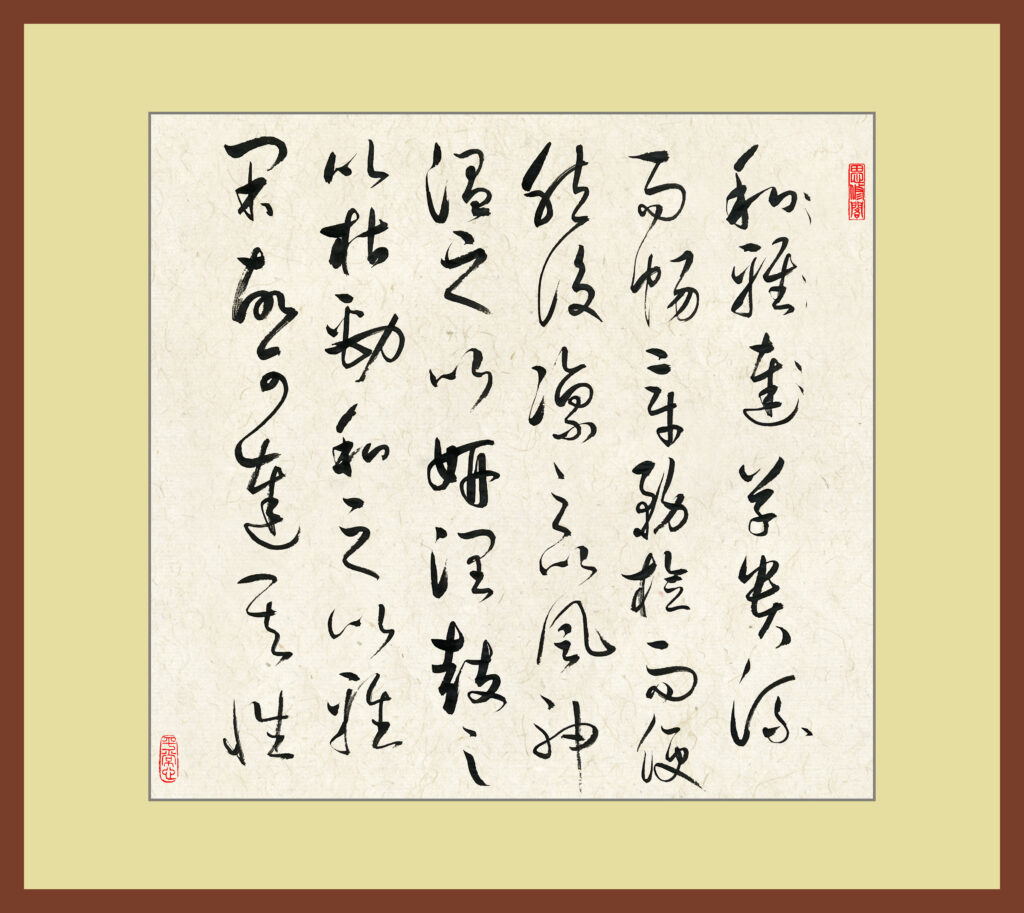 和雅達草貴流
而暢章務檢而便
然後凜之以風神
溫之以妍潤鼓之
以枯勁和之以雅
閑故可達其性
平常心